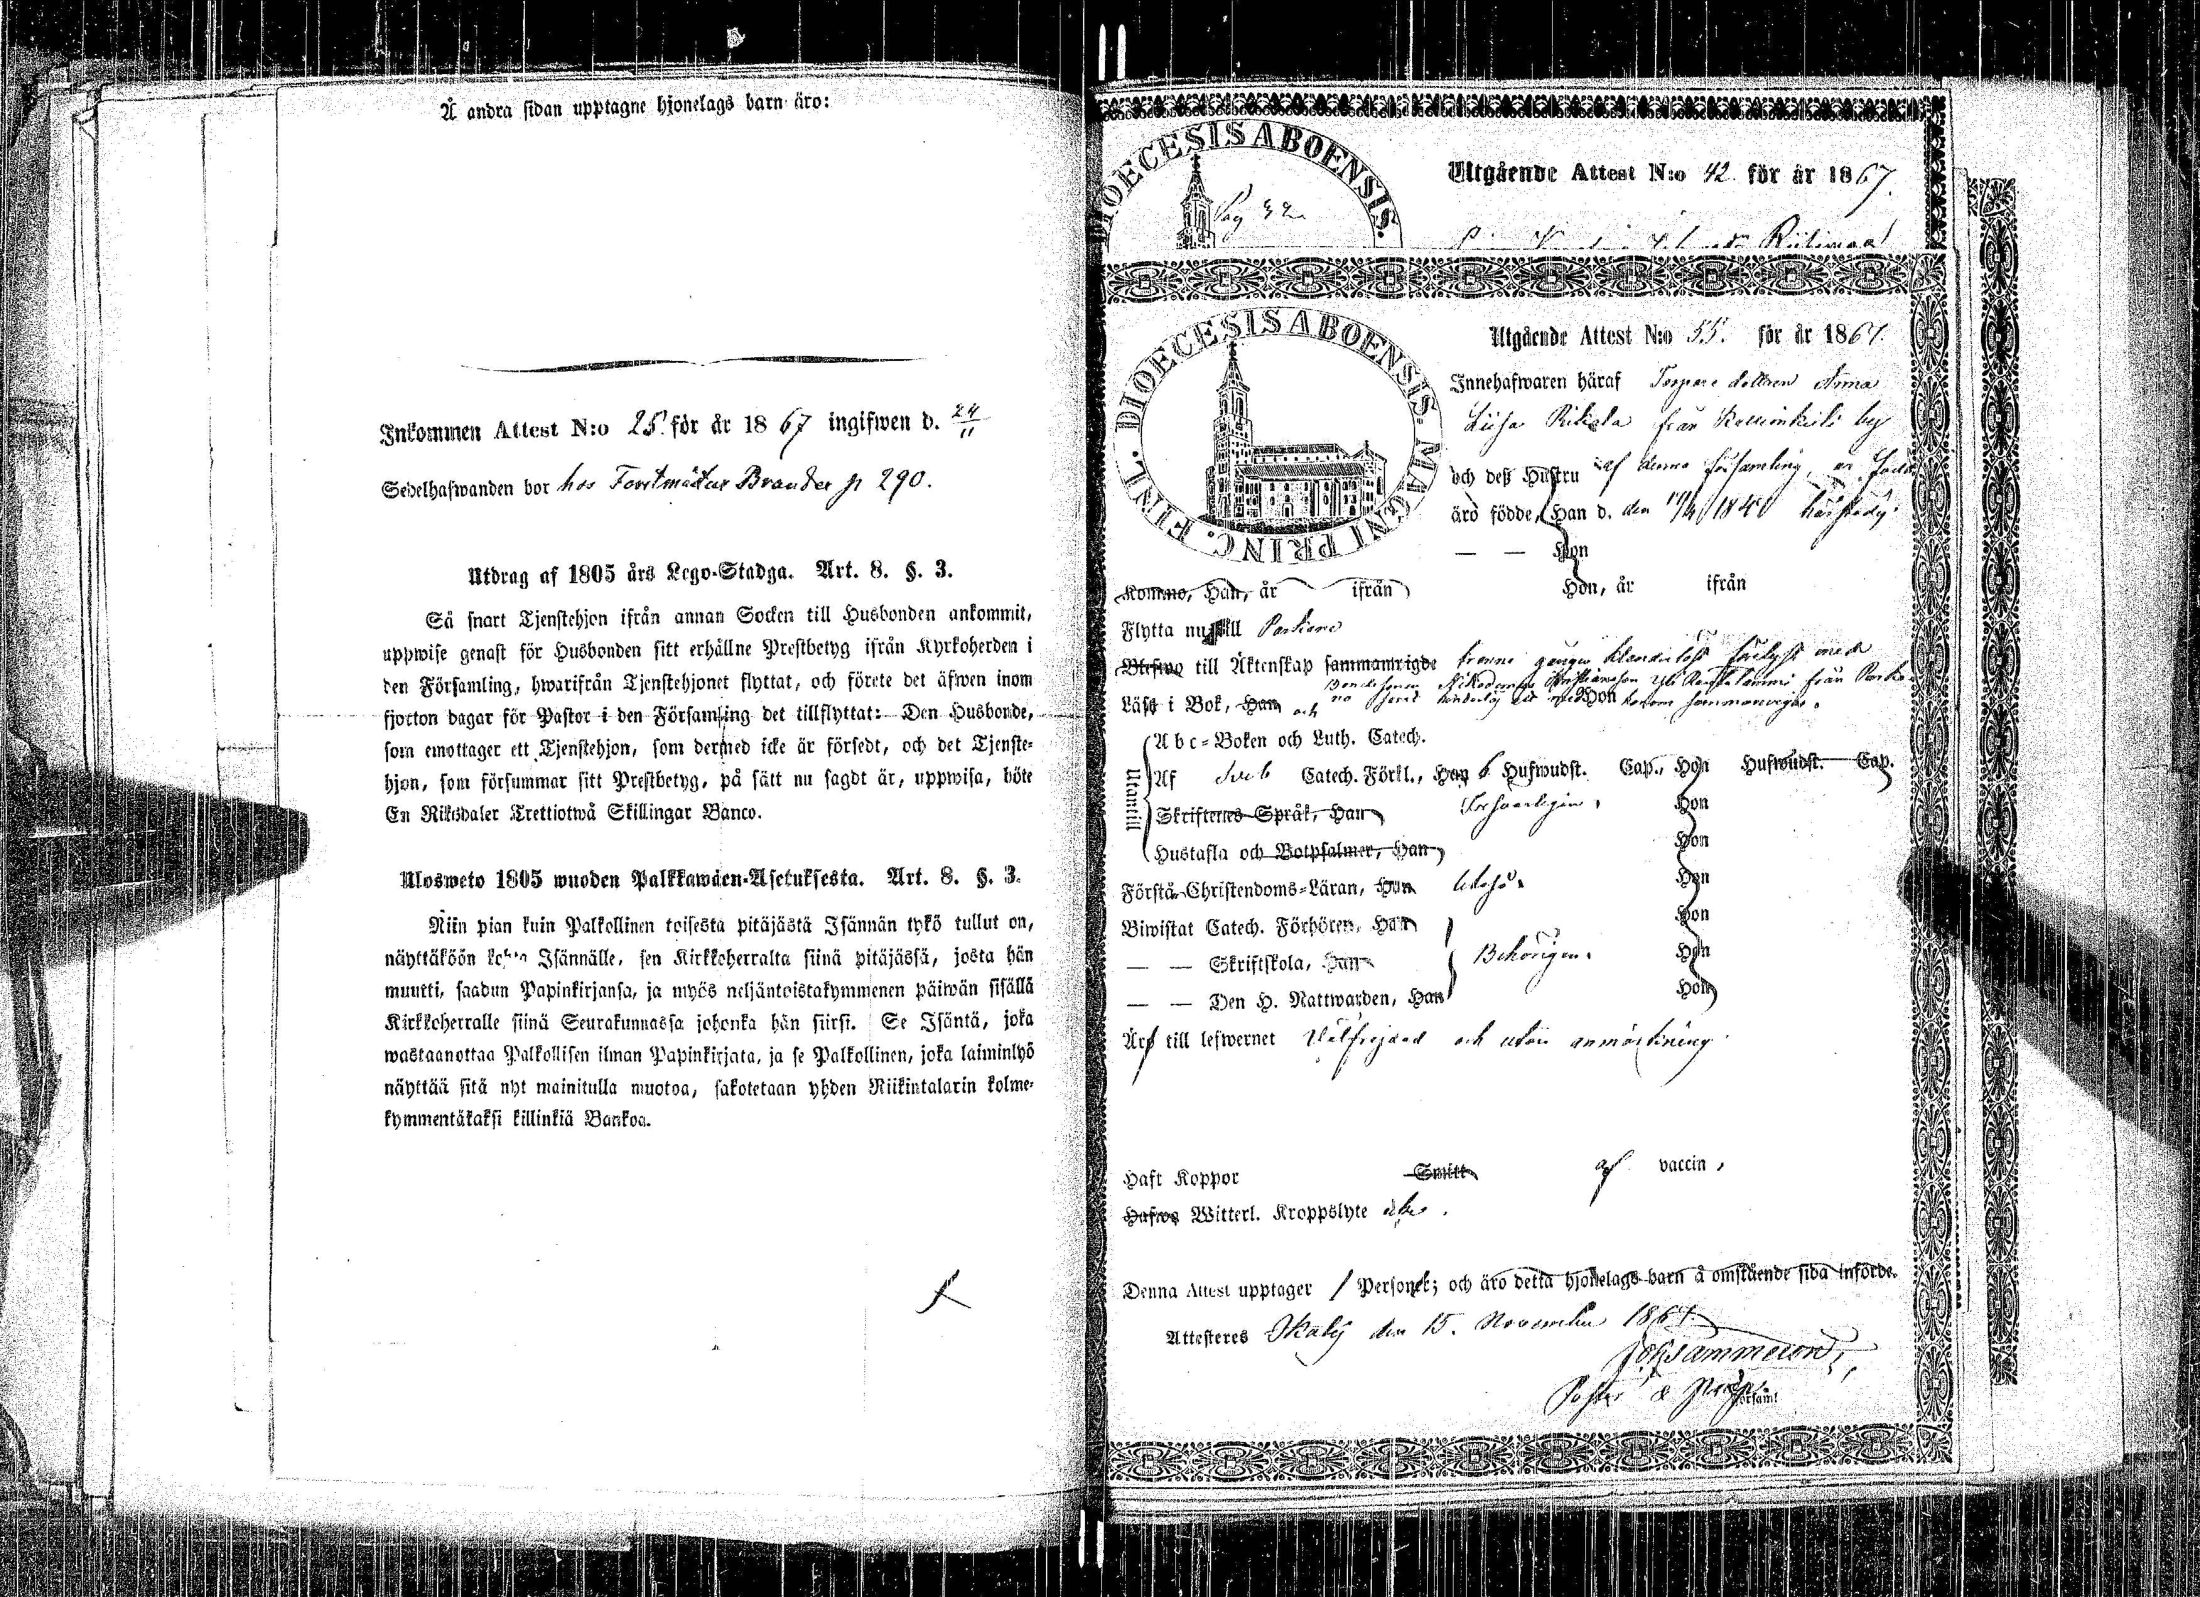 Å andra sidan upptagne hjonelags barn äro:
Inkommen Attest N:o 25. för år 1867 ingifwen d. 24/11
Sedelhafwanden bor hos Forstmästar Brander p 290.
Utdrag af 1805 års Lego-Stadga. Art. 8. §. 3.
Så snart Tjenstehjon ifrån annan Socken till Husbonden ankommit,
uppwise genast för Husbonden sitt erhållne Prestbetyg ifrån Kyrkoherden i
den Församling, hwarifrån Tjenstehjonet flyttat, och förete det äfwen inom
fjorton dagar för Pastor i den Församling det tillflyttat: Den Husbonde,
som emottager ett Tjenstehjon, som dermed icke är försedt, och det Tjenste-
hjon, som försummar sitt Prestbetyg, på sätt nu sagdt är, uppwisa, böte
En Riksdaler Trettiotwå Skillingar Banco.
Ulosweto 1805 wuoden Palkkawäen-Asetuksesta. Art. 8. §. 3.
Niin pian kuin Palkollinen toisesta pitäjästä Isännän tykö tullut on,
näyttäköön kohta Isännälle, sen Kirkkoherralta siinä pitäjässä, josta hän
muutti, saadun Papinkirjansa, ja myös neljäntoistakymmenen päiwän sisällä
Kirkkoherralle siinä Seurakunnassa johonka hän siirsi. Se Isäntä, joka
wastaanottaa Palkollisen ilman Papinkirjata, ja se Palkollinen, joka laiminlyö
näyttää sitä nyt mainitulla muotoa, sakotetaan yhden Riikintalarin kolme-
kymmentäkaksi killinkiä Bankoa.
DIOECESIS ABOENSIS.
Pag
Utgående Attest N:o 42 för år 1867.
FINL. DIOECESIS ABOENSIS MAGNI PRINC.
Utgående Attest N:o 55. för år 1867.
Innehafwaren häraf Torpare dottren Anna
Liisa från by
och deß Hustru af denna församling, är född
äro födde, Han d. den 1840 härstädes
— — Hon
Kommo, Han, år ifrån Hon, år ifrån
Flytta nu till Parkano
Blefwo till Äktenskap sammanwigde trenne gånger klanderlöst förlyst med
Läst i Bok, Han och Hon
Utantill
Abc-Boken och Luth. Catech.
Af Sveb Catech. Förkl., Han 6 Hufwudst. Cap., Hon Hufwudst. Cap.
Skriftenes Språk, Han Försvarligen. Hon
Hustafla och Botpsalmer, Han Hon
Förstå Christendoms-Läran, Han Hon
Biwistat Catech. Förhören, Han Hon
— — Skriftskola, Han Behörigen. Hon
— — Den H. Nattwarden, Han Hon
Äro till lefwernet Välfrejdad och utan anmärkning
Haft Koppor Smitt af vaccin,
Hafwa Witterl. Kroppslyte
Denna Attest upptager 1 Person; och äro detta hjonelags barn å omstående sida införde.
Attesteres Ikalis den 15. November 1867.
Pastor
Församl.